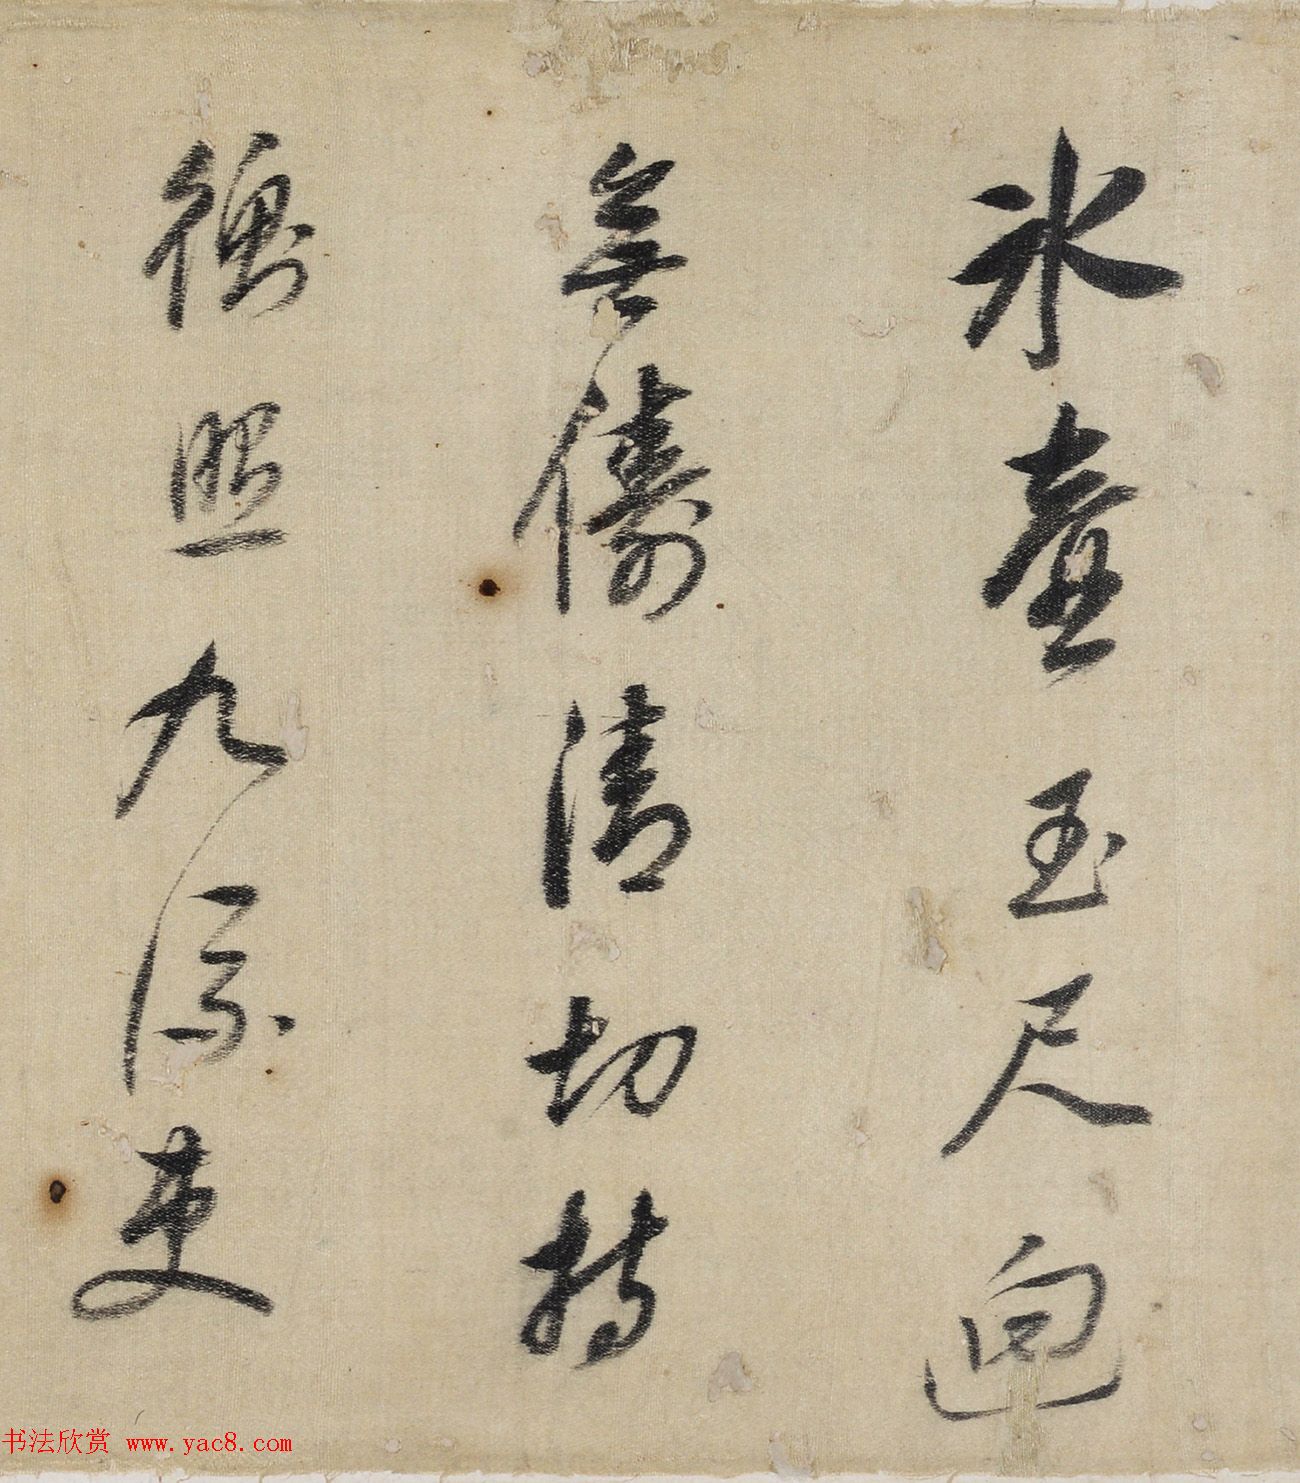 冰壺玉尺迥
無儔清切持
衡照九流更
书法欣赏 www.yac8.com